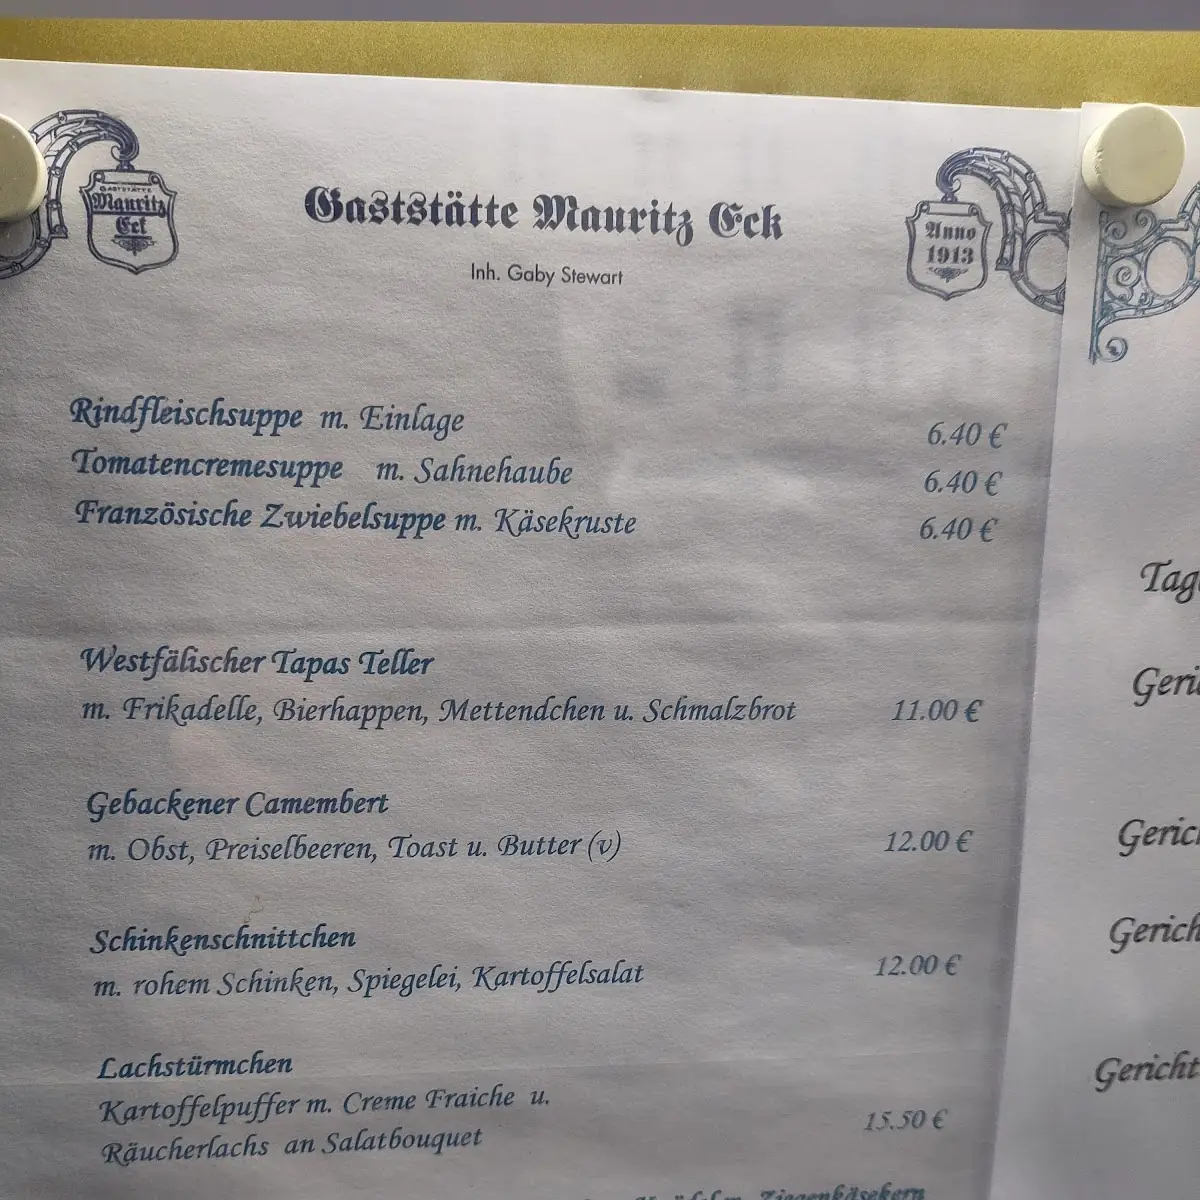 GASTSTÄTTE
Mauritz
Eck
Gaststätte Mauritz Eck
Inh. Gaby Stewart
Anno
1913
Rindfleischsuppe m. Einlage 6.40 €
Tomatencremesuppe m. Sahnehaube 6.40 €
Französische Zwiebelsuppe m. Käsekruste 6.40 €
Westfälischer Tapas Teller
m. Frikadelle, Bierhappen, Mettendchen u. Schmalzbrot 11.00 €
Gebackener Camembert
m. Obst, Preiselbeeren, Toast u. Butter (v) 12.00 €
Schinkenschnittchen
m. rohem Schinken, Spiegelei, Kartoffelsalat 12.00 €
Lachstürmchen
Kartoffelpuffer m. Creme Fraiche u.
Räucherlachs an Salatbouquet 15.50 €
Ziegenkäsekern
Tag
Geri
Geric
Gerich
Gericht